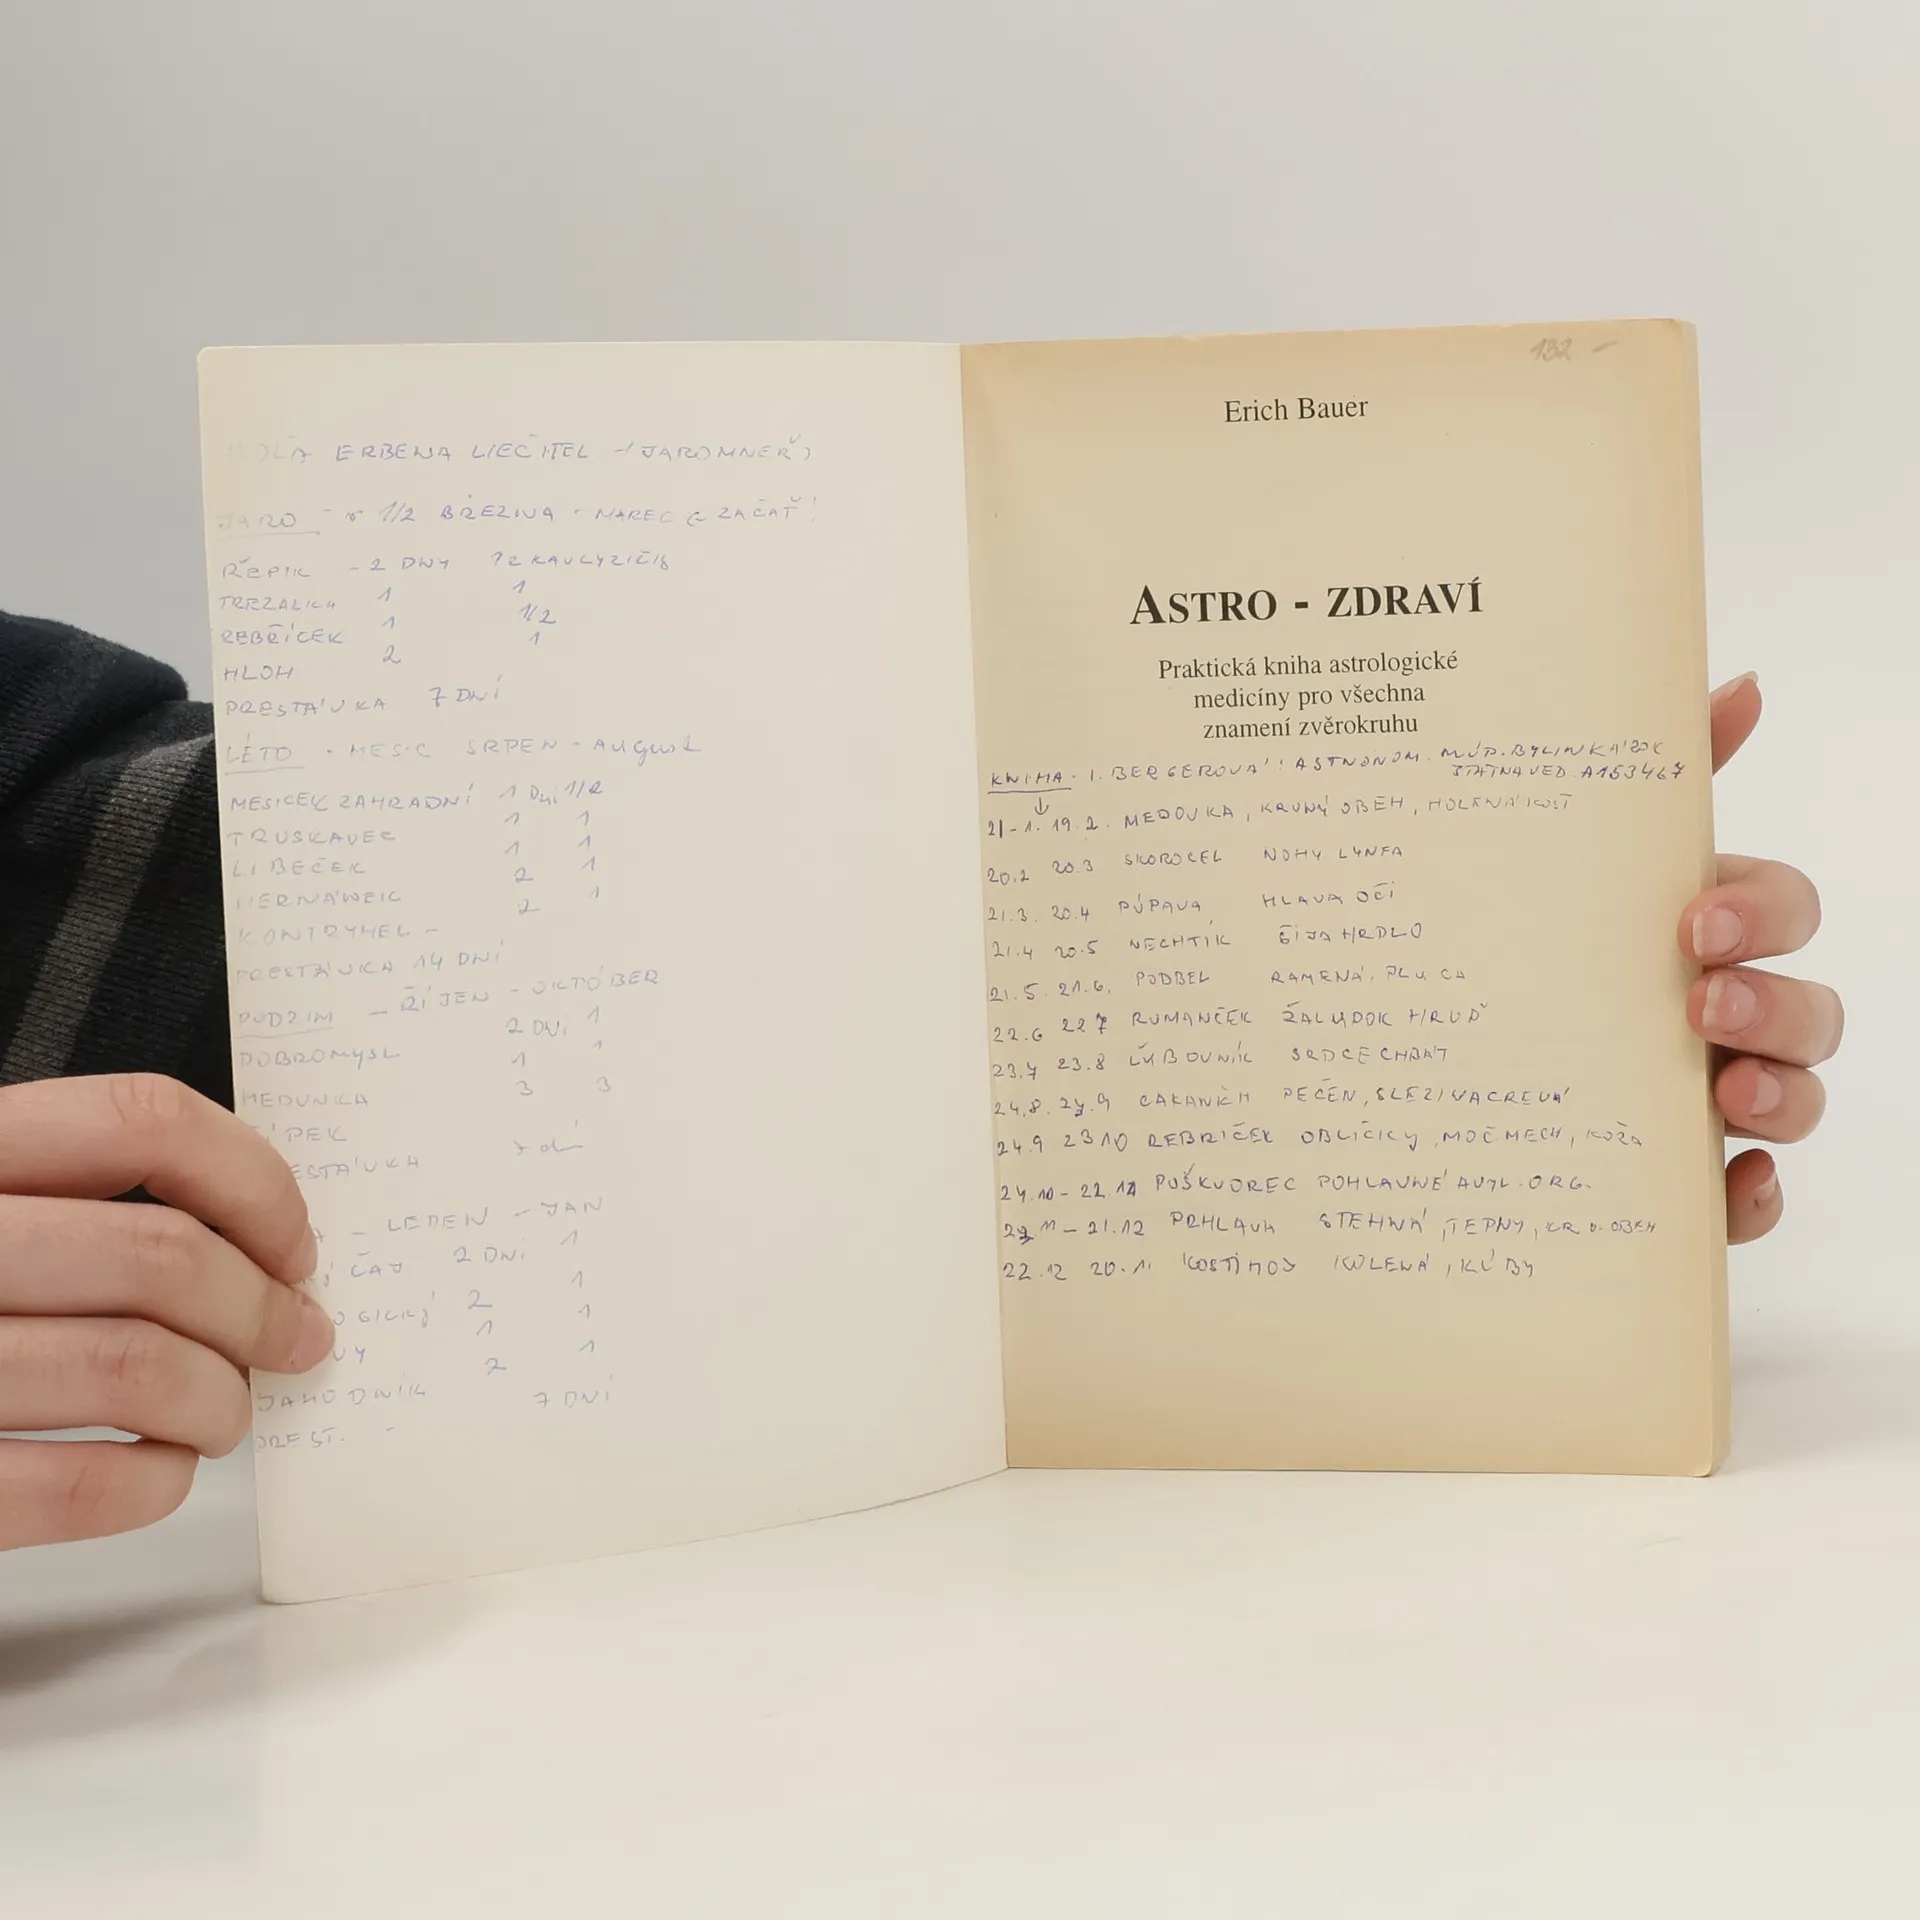 ERBENA LIEČITEL - (JAROMNEŘ)
JARO - v 1/2 BŘEZINA - MAREC ZAČAŤ!
ŘEPIK - 2 DNY
TREZALKA 1 1
REBŘÍČEK 1 1/2
HLOH 2 1
PRESTÁVKA 7 DNÍ
LÉTO - MESIC SRPEN - AUGUST
MESICEK ZAHRADNÍ 1 DNÍ 1/2
TRUSKAVEC 1 1
LIBEČEK 1 1
2 1
KONTRYHEL - 2 1
PRESTÁVKA 14 DNÍ
PODZIM - ŘÍJEN - OKTÓBER
DOBROMYSL 2 DNÍ 1
MEDUNKA 1 1
ÍPEK 3 3
ESTÁVKA
A - LEDEN - JAN
ČAJ 2 DNÍ 1
OGICKÝ 2 1
VY 1 1
JAHODNÍK 2 1
PREST. - 7 DNÍ
132 -
Erich Bauer
ASTRO - ZDRAVÍ
Praktická kniha astrologické
medicíny pro všechna
znamení zvěrokruhu
KNIHA - I. BERGEROVÁ: ASTNONOM. MÚD. BYLINKÁŘOK
ŠTÁTNA VED. A153467
21-1. 19.2. MEDOVKA, KRVNÝ OBEH, HOLENÁ KOSŤ
20.2 20.3 SKOROCEL NOHY LYNFA
21.3. 20.4 PÚPAVA HLAVA OČÍ
21.4 20.5 NECHTÍK ŠIJA HRDLO
21.5. 21.6. PODBEL RAMENÁ, PLUCA
22.6 22 7 RUMANČEK ŽALUDOK HRUĎ
23.7 23.8 ĽUBOVNÍK SRDCE CHBÁT
24.8. 23.9 CAKANKA PEČEŇ, SLEZINA CREVÁ
24.9 23 10 REBRIČEK OBLIČKY, MOČ. MECH, KOŽA
24.10 - 22.11 PUŠKVOREC POHLAVNÉ ORG.
23.11 - 21.12 PRHLAVA STEHNÁ, TEPNY, KRV. OBEH
22.12 20.1. KOSTIHOJ KOLENÁ, KĹBY